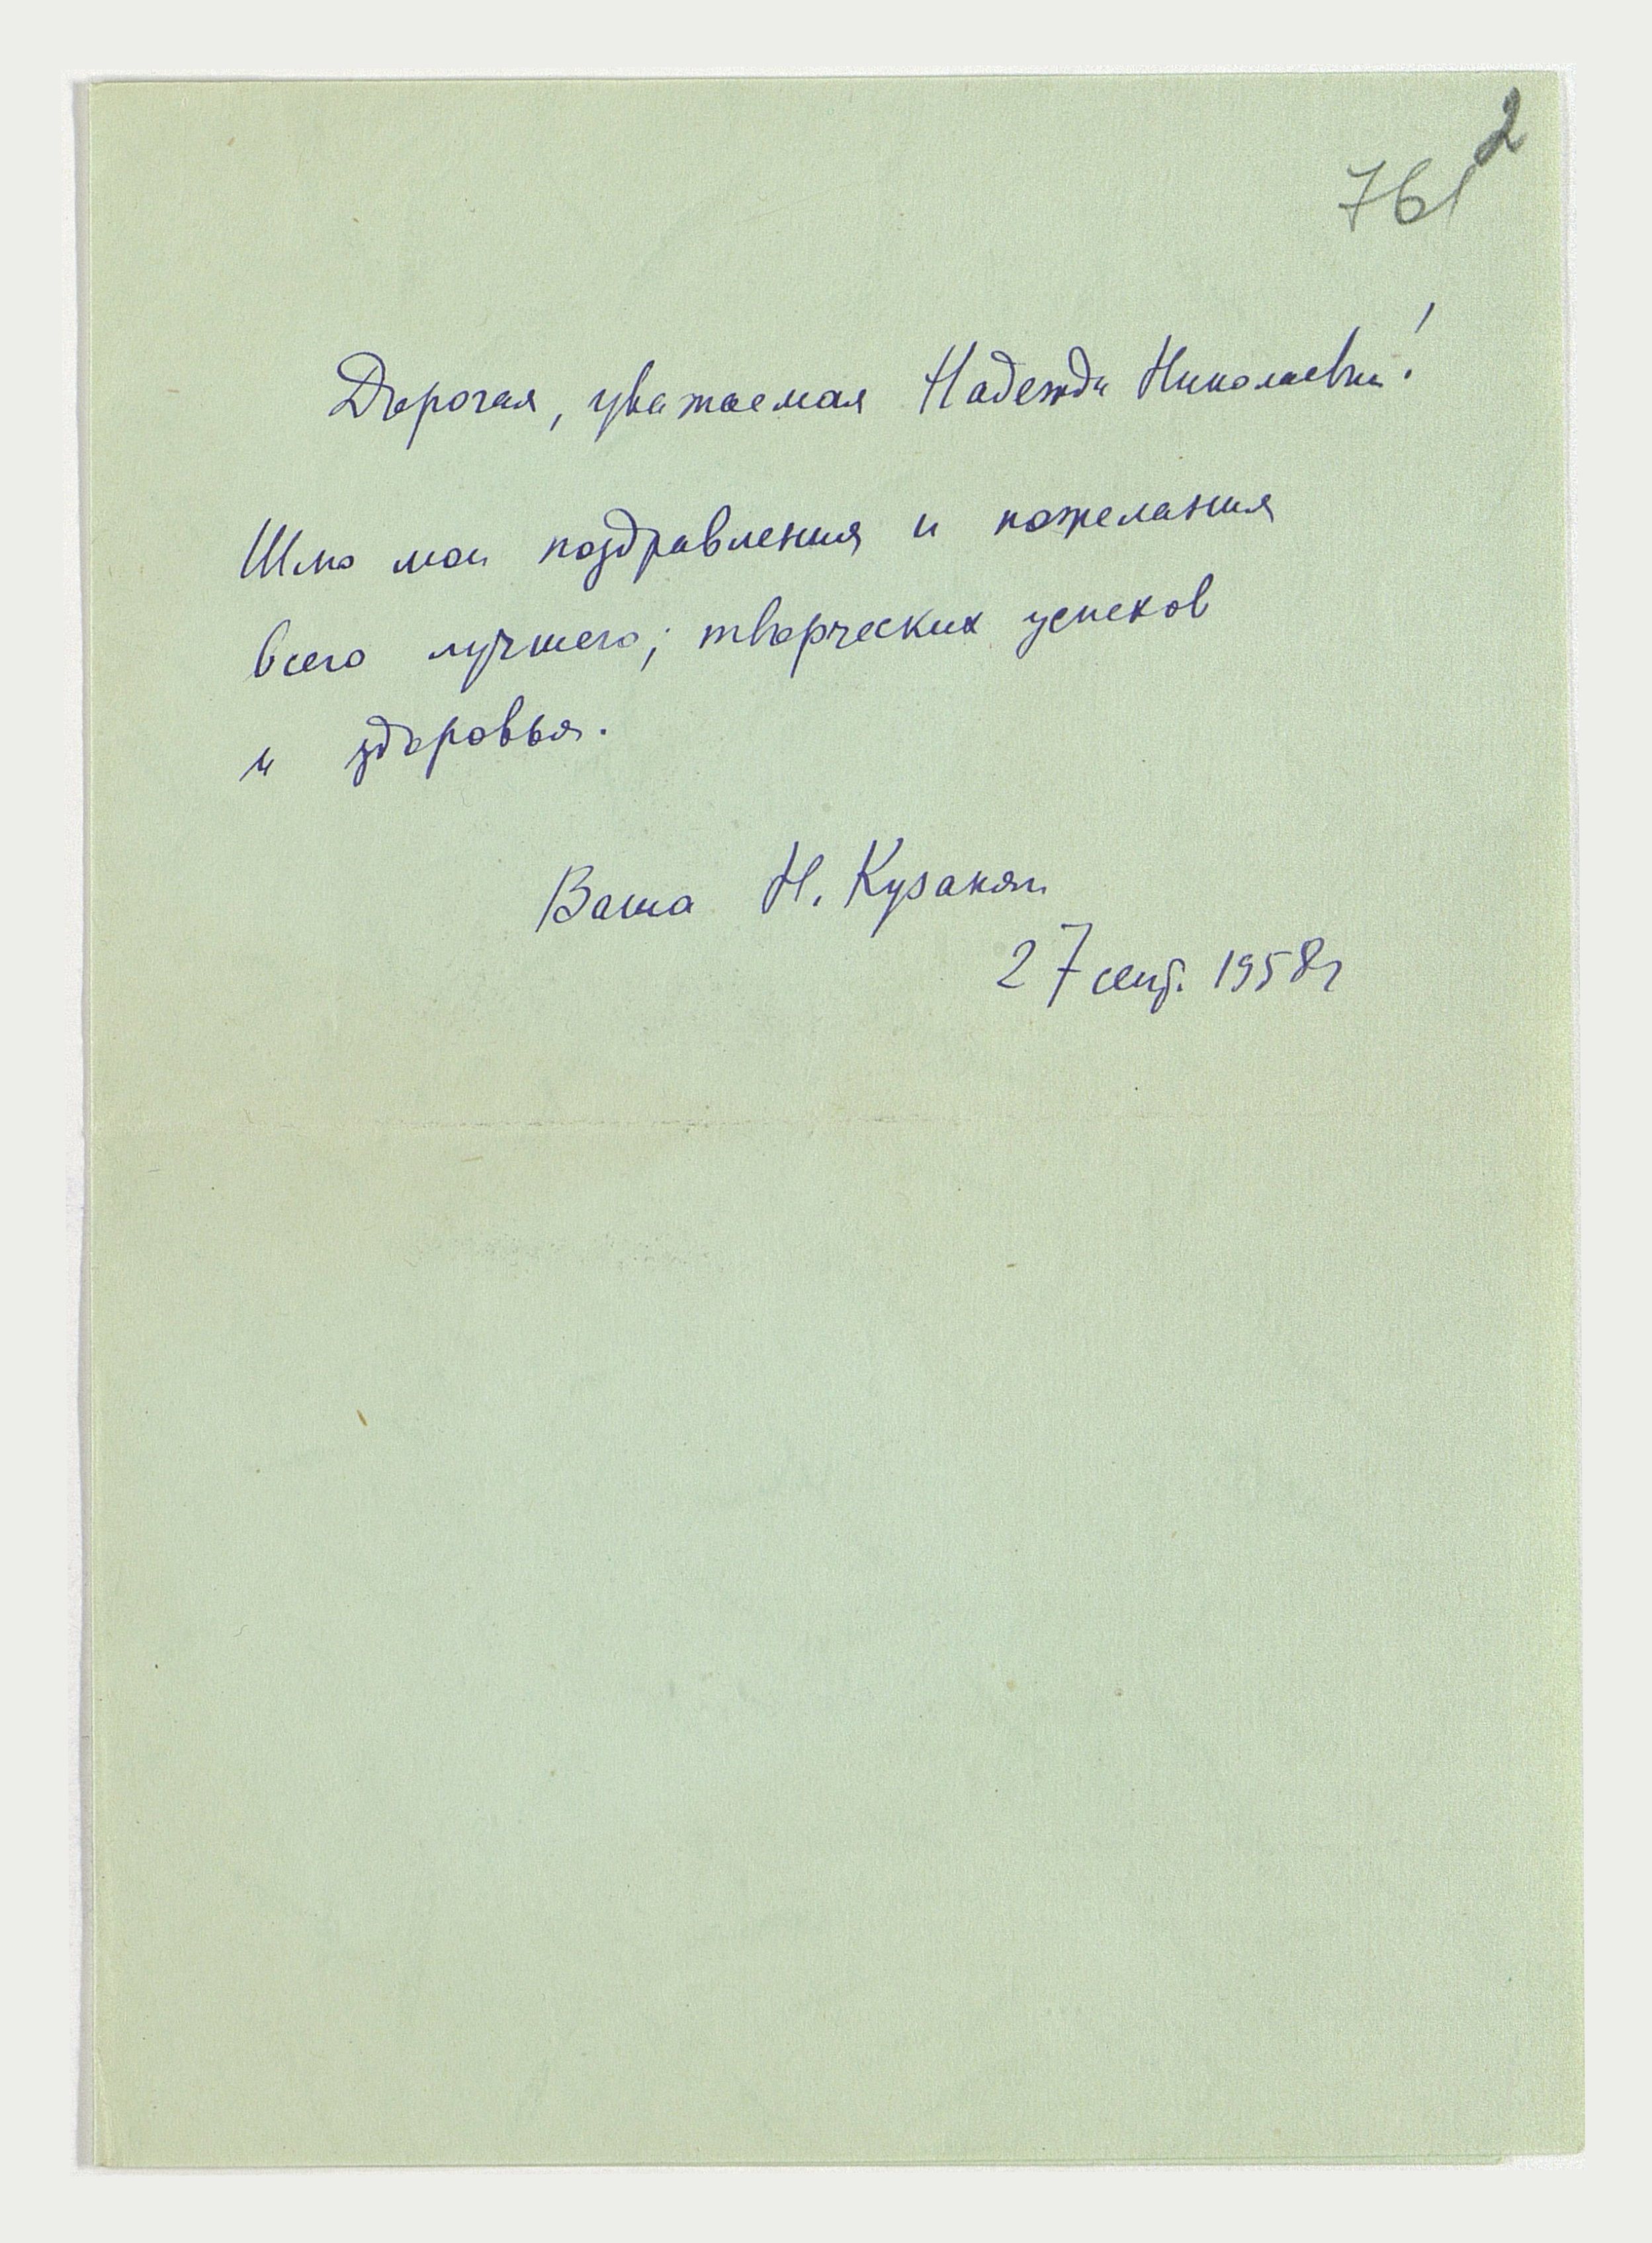 2
761
Дорогая, уважаемая Надежда Николаевна!
Шлю мои поздравления и пожелания
всего лучшего; творческих успехов
и здоровья.
Ваша Н.
27 сент. 1958г